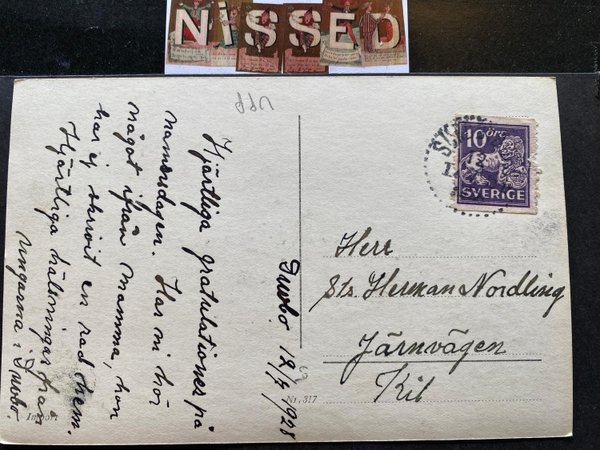 NISSED
Hjärtliga gratulationer på
namnsdagen. Har ni hör
något ifrån mamma, hon
har ej skrivit en rad hem.
Hjärtliga hälsningar från
ungarna i
12/7 1928
Import
Nr. 317
10 ÖRE
SVERIGE
Herr
Sts. Herman Nordling
Järnvägen
Kil